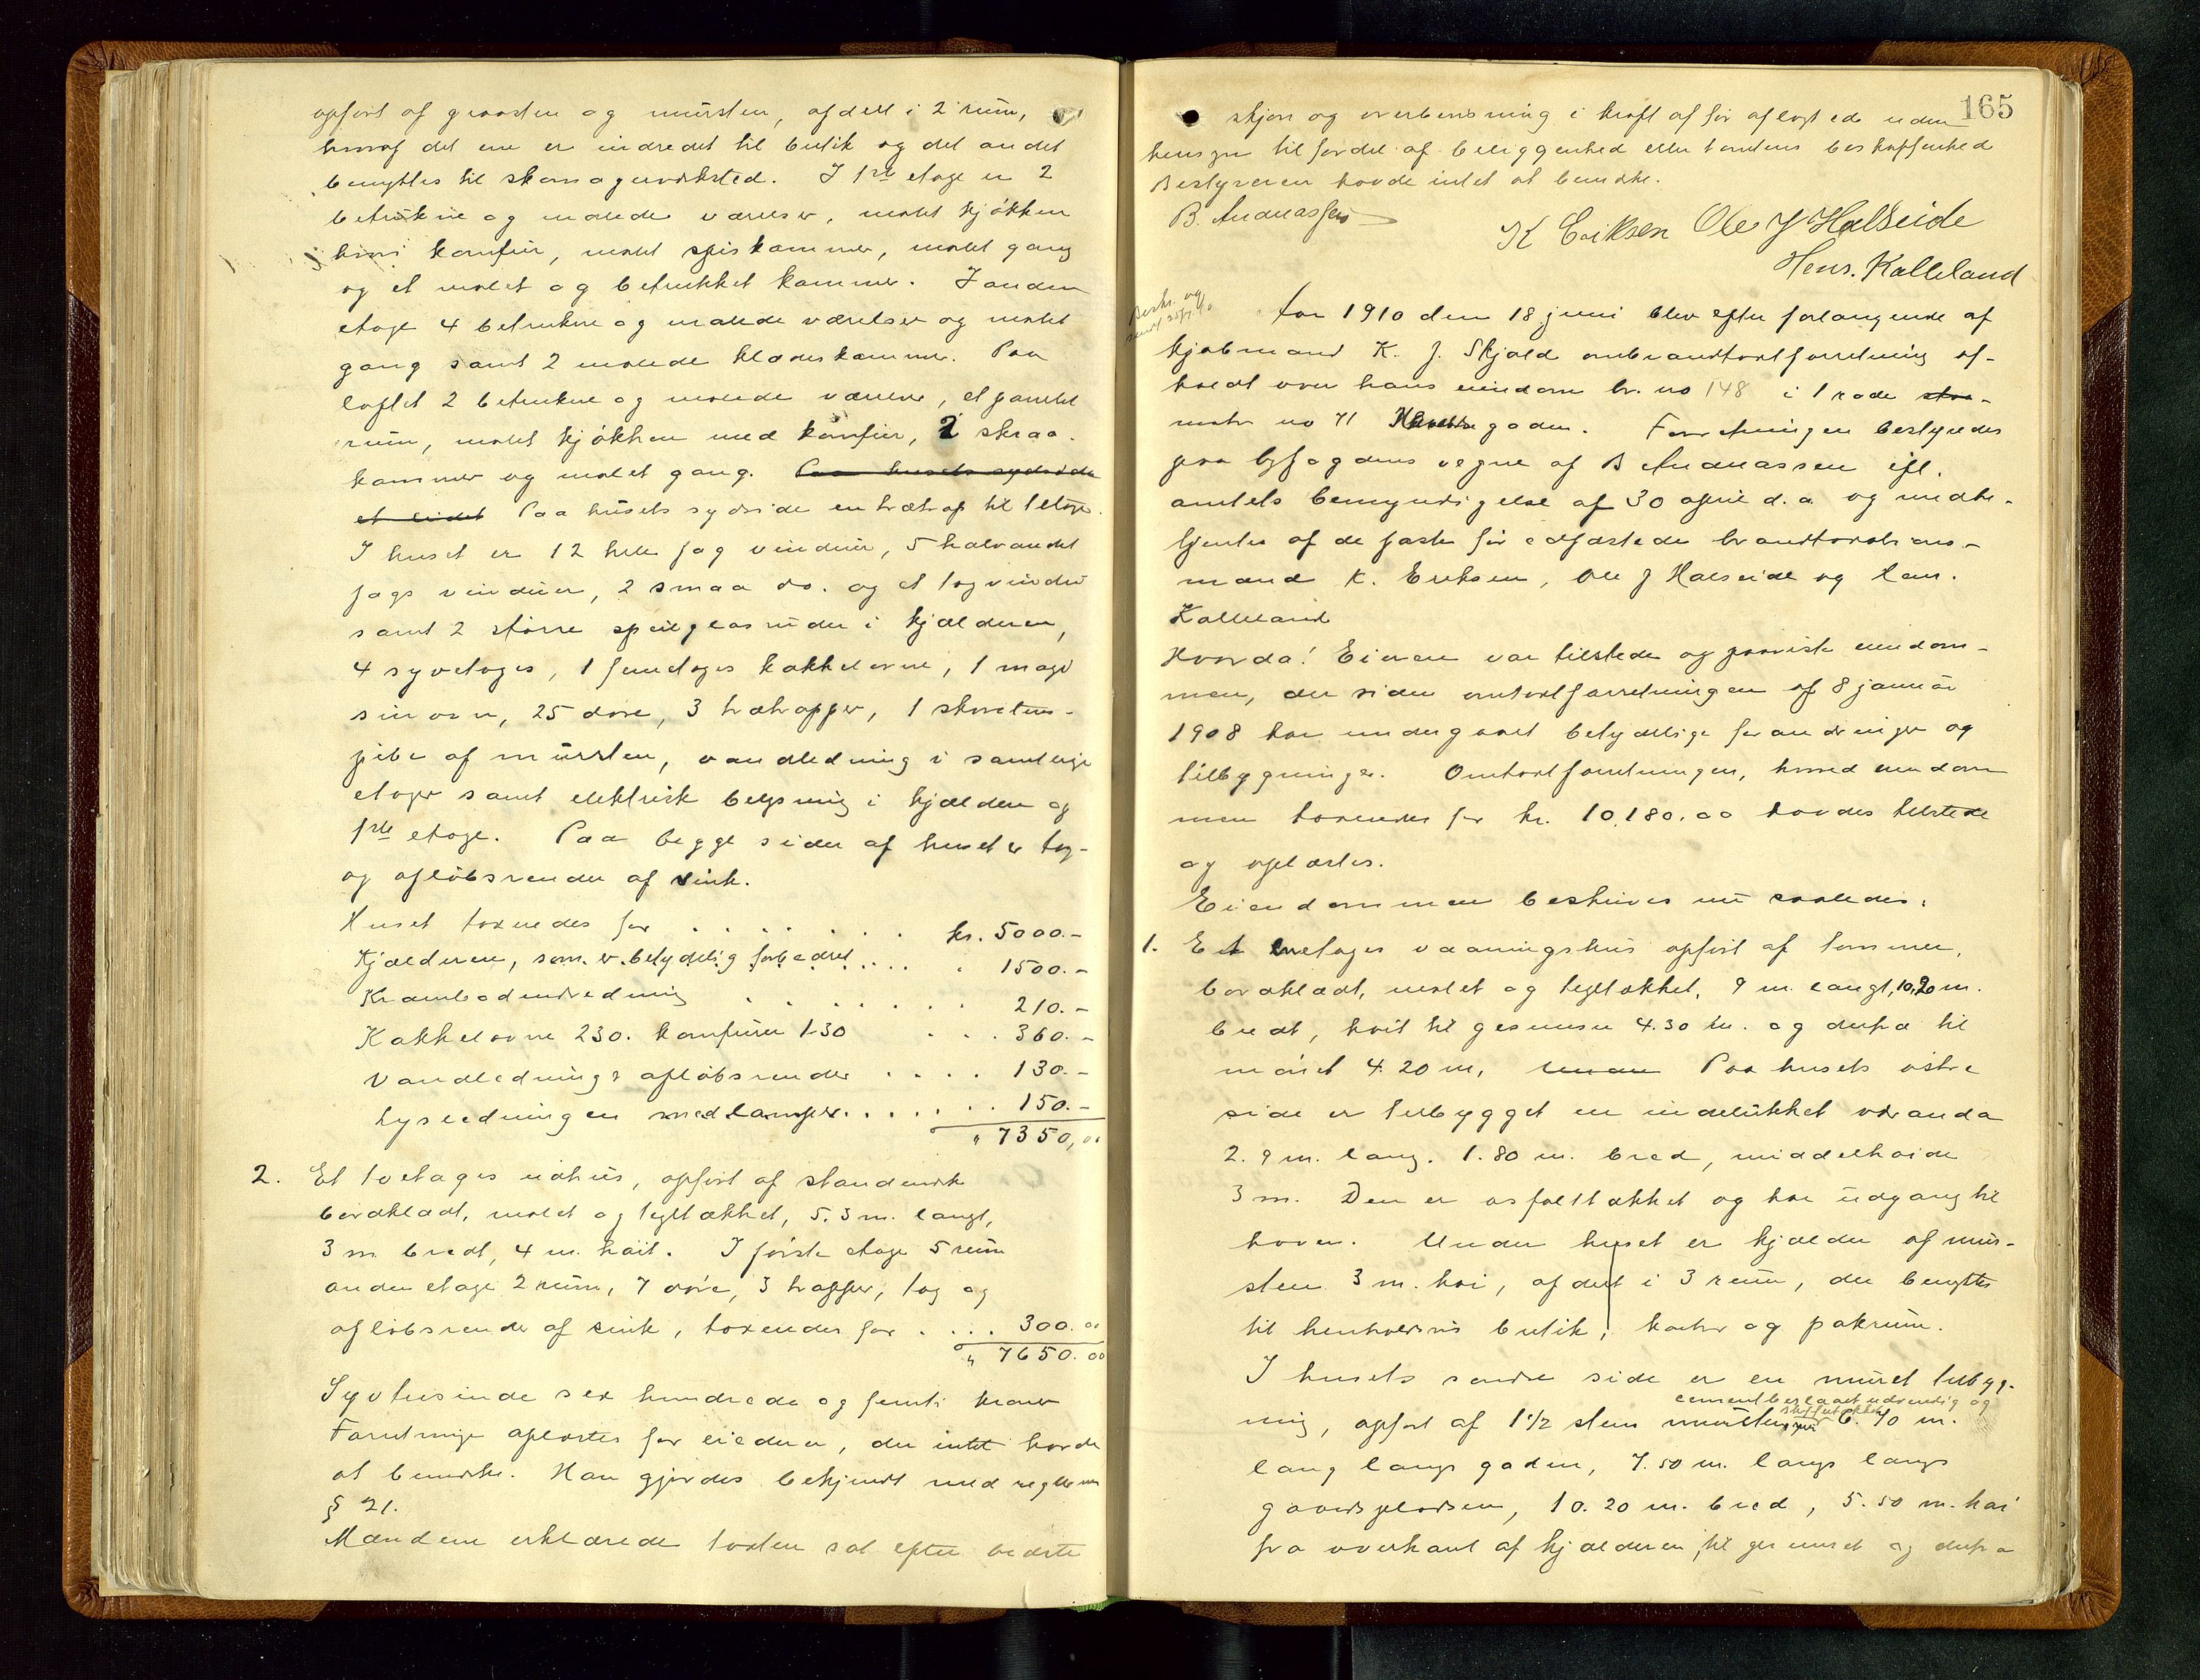 opført af graasten og mursten, afdelt i 2 rum,
hvoraf det ene er indredet til butik og det andet
benyttes til skomagerværksted. I 1ste etage er 2
betrukne og malede værelser, malet kjøkken
hvori komfur, malet spiskammer, malet gang
og et malet og betrukket kammer. I anden
etage 4 betrukne og malede værelser og malet
gang samt 2 malede klædeskammer. Paa
loftet 2 betrukne og malede værelse, et panelet
rum, malet kjøkken med komfur, 2 skraa-
kammer og malet gang. Paa husets sydside
et lidet Paa husets sydside en trætrap til 1 etage.
I huset er 12 hele fag vinduer, 5 halvandet
fags vinduer, 2 smaa do. og et tagvindu
samt 2 større speilglasruder i kjælderen,
4 syvetages, 1 femetages kakkelovne, 1 maga
sinovn, 25 døre, 3 trætrapper, 1 skorstens-
pibe af mursten, vandledning i samtlige
etager samt elektrisk belysning i kjælder og
1ste etage. Paa begge sider af huset er tag-
og afløbsrender af zink.
Huset taxeredes for . . . . . . . kr. 5000.-
Kjælderen, som er betydelig forbedret . . . . 1500.-
Krambodindredning . . . . . . . 210.-
Kakkelovne 230. komfurer 130 . . . 360.-
Vandledning & afløbsrender . . . . 130.-
Lysledningen med lamper . . . . . . 150.-
" 7350,00
2. Et toetages udhus, opført af standerverk
bordklædt, malet og tegltækket, 5.3 m. langt,
3 m bredt, 4 m. høit. I første etage 5 rum
anden etage 2 rum, 7 døre, 3 trapper, tag og
afløbsrender af zink, taxeredes for . . . . 300.00
" 7650.00
Syvtusinde sex hundrede og femti kroner
Forretninge oplæstes for eieren, der intet havde
at bemerke. Han gjordes bekjendt med reglerne
§ 21.
Mændene erklærede taxten sat efter bedste
165
skjøn og overbevisning i kraft af før aflagt ed uden
hensyn til fordel af beliggenhed eller tomtens beskaffenhed
Bestyreren havde intet at bemerke.
B. Andreassen
K Eriksen Ole J Halseide
Hens. Kalleland
Beskr. og
Aar 1910 den 18 juni blev efter forlangende af
kjøbmand K. J. Skjold ombrandtaxtforretning af-
holdt over hans eiendom br. no 148 i 1 rode
matr no 71 gaden. Forretningen bestyredes
paa byfogdens vegne af B Andreassen ifl.
amtets bemyndigelse af 30 april d.a. og medbe-
tjentes af de faste før edfæstede brandtaxtions-
mænd K. Eriksen, Ole J Halseide og Hans.
Kalleland
Hvorda! Eieren var tilstede og paaviste eiendom-
men, der siden omtaxtforretningen af 8 januar
1908 har undergaaet betydelige forandringer og
tilbygninger. Omtaxtforretningen, hvorved eiendom
men taxeredes for kr. 10.180.00 havdes tilstede
og oplæstes.
Eiendommen beskrives nu saaledes:
1. Et enetages vaaningshus opført af tømmer,
bordklædt, malet og tegltækket, 9 m. langt, 10,20 m.
bredt, høit til gesimsen 4.30 m. og derfra til
mønet 4.20 m, Paa husets østre
side er tilbygget en indelukket veranda
2.9 m. lang. 1.80 m. bred, middelhøide
3 m. Den er asfalttækket og har udgang til
haven. Under huset er kjælder af mur-
sten 3 m. høi, afdelt i 3 rum, der benyttes
til henholdsvis butik, kontor og pakrum.
I husets søndre side er en muret tilbyg-
cementberlaaet udvendig og
skifertækket
ning, opført af 1½ stens mursten, 6.70 m.
lang langs gaden, 7.50 m. langs langs
gaardspladsen, 10.20 m. bred, 5.50 m. høi
fra overkant af kjælderen, til gesimset og derfra